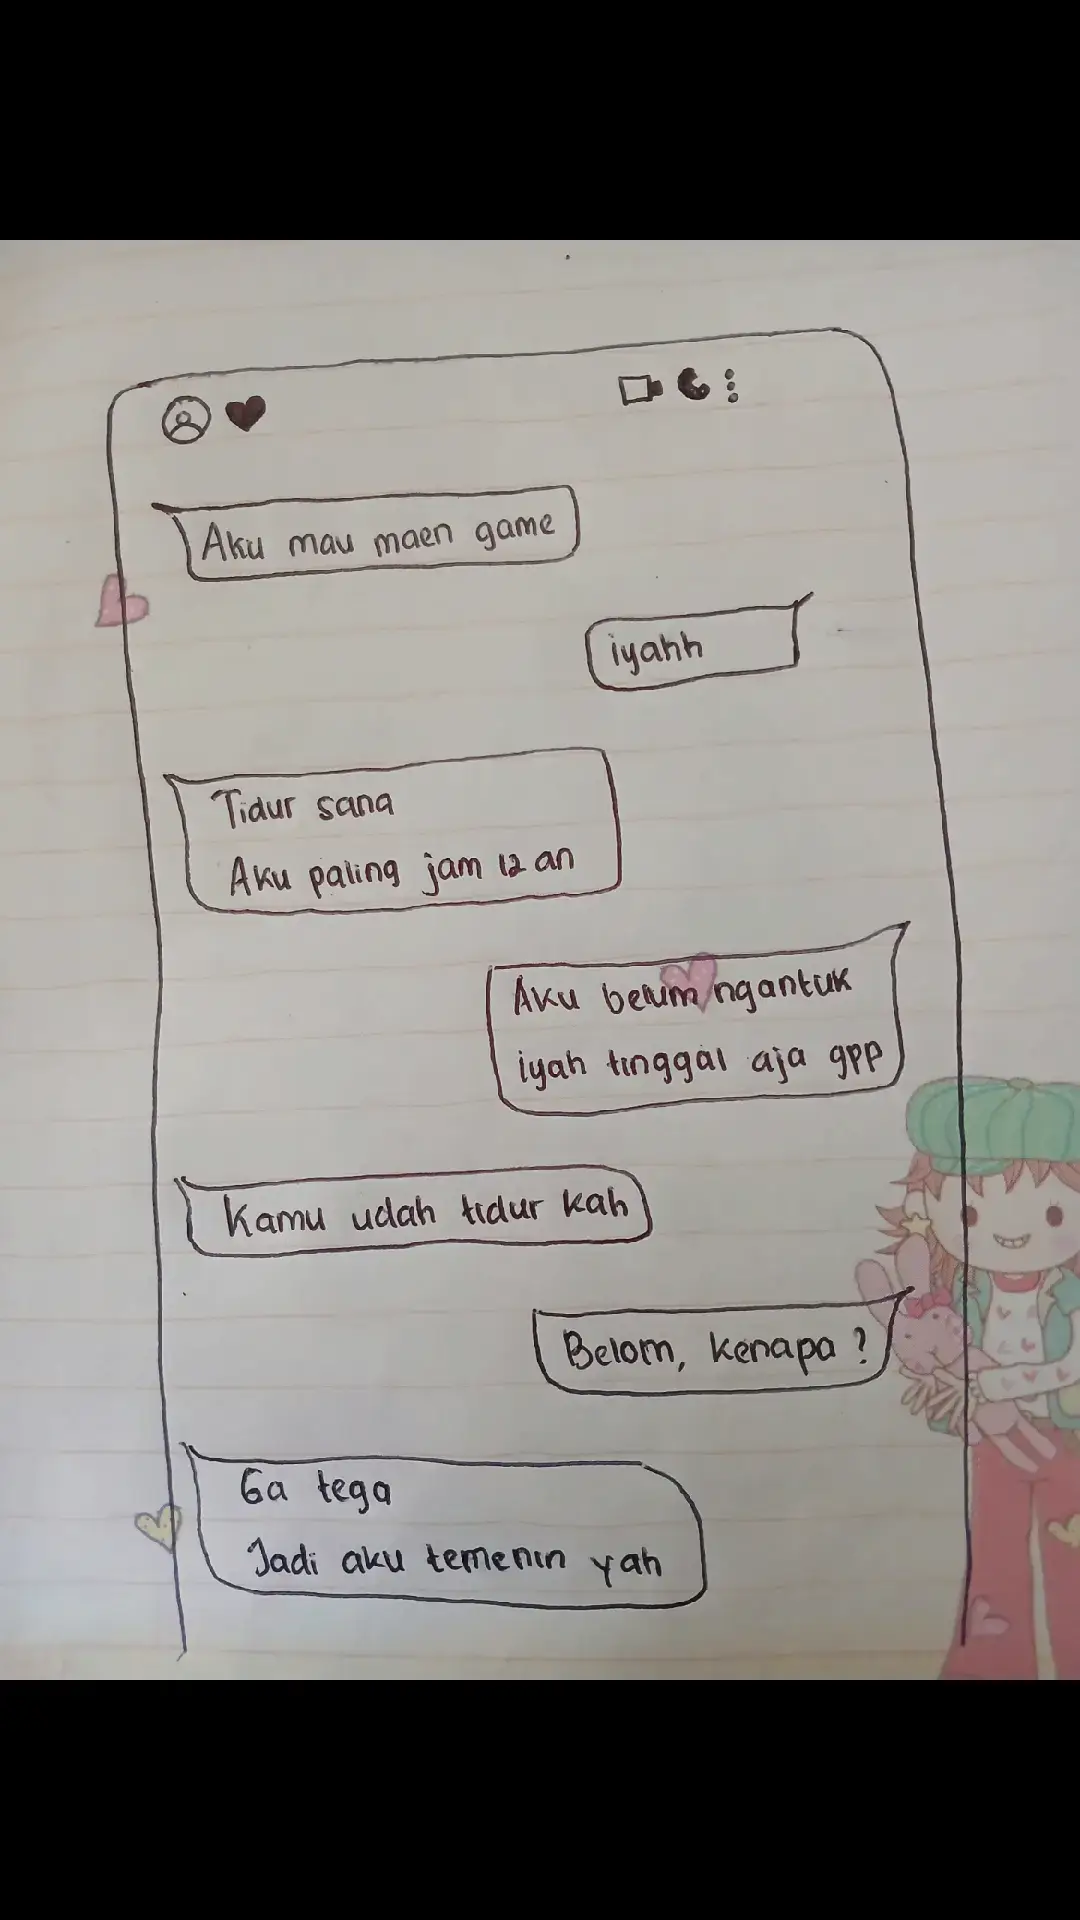 Aku mau maen game
iyahh
Tidur sana
Aku paling jam 12 an
Aku belum ngantuk
iyah tinggal aja gpp
Kamu udah tidur kah
Belom, kenapa ?
Ga tega
Jadi aku temenin yah